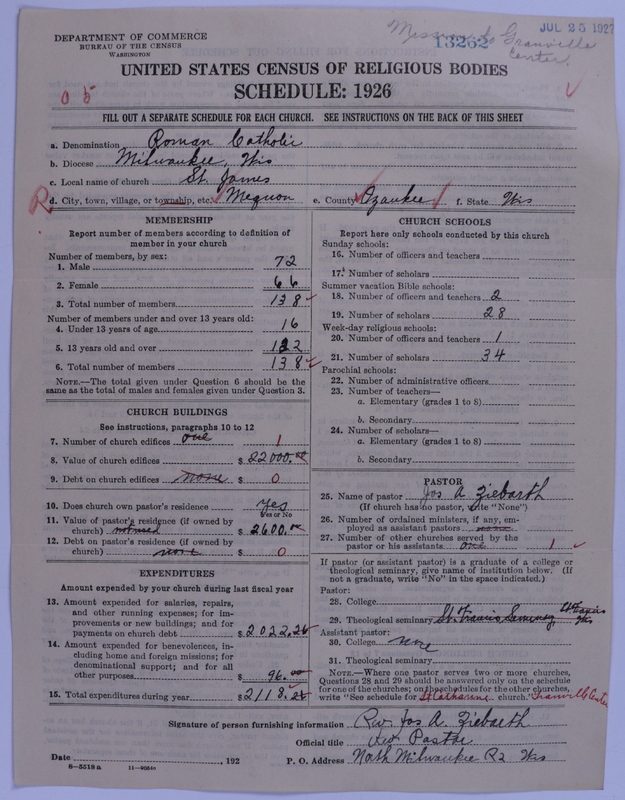 DEPARTMENT OF COMMERCE
BUREAU OF THE CENSUS
WASHINGTON
Mission to Granville Center.
13262
JUL 25 1927
UNITED STATES CENSUS OF RELIGIOUS BODIES
SCHEDULE: 1926
0 5
FILL OUT A SEPARATE SCHEDULE FOR EACH CHURCH. SEE INSTRUCTIONS ON THE BACK OF THIS SHEET
a. Denomination Roman Catholic
b. Diocese Milwaukee, Wis
c. Local name of church St. James
R d. City, town, village, or township, etc. Mequon e. County Ozaukee f. State Wis
MEMBERSHIP
Report number of members according to definition of member in your church
Number of members, by sex:
1. Male 72
2. Female 66
3. Total number of members 138
Number of members under and over 13 years old:
4. Under 13 years of age 16
5. 13 years old and over 122
6. Total number of members 138
NOTE.—The total given under Question 6 should be the
same as the total of males and females given under Question 3.
CHURCH BUILDINGS
See instructions, paragraphs 10 to 12
7. Number of church edifices one 1
8. Value of church edifices $ 22000.00
9. Debt on church edifices none $ 0
10. Does church own pastor's residence yes
Yes or No
11. Value of pastor's residence (if owned by
church) not used $ 2600.00
12. Debt on pastor's residence (if owned by
church) none $ 0
EXPENDITURES
Amount expended by your church during last fiscal year
13. Amount expended for salaries, repairs,
and other running expenses; for im-
provements or new buildings; and for
payments on church debt $ 2022.26
14. Amount expended for benevolences, in-
cluding home and foreign missions; for
denominational support; and for all
other purposes $ 96.00
15. Total expenditures during year $ 2118.26
CHURCH SCHOOLS
Report here only schools conducted by this church
Sunday schools:
16. Number of officers and teachers
17. Number of scholars
Summer vacation Bible schools:
18. Number of officers and teachers 2
19. Number of scholars 28
Week-day religious schools:
20. Number of officers and teachers 1
21. Number of scholars 34
Parochial schools:
22. Number of administrative officers
23. Number of teachers—
a. Elementary (grades 1 to 8)
b. Secondary
24. Number of scholars—
a. Elementary (grades 1 to 8)
b. Secondary
PASTOR
25. Name of pastor Jos A Ziebarth
(If church has no pastor, write "None")
26. Number of ordained ministers, if any, em-
ployed as assistant pastors none
27. Number of other churches served by the
pastor or his assistants one 1
If pastor (or assistant pastor) is a graduate of a college or
theological seminary, give name of institution below. (If
not a graduate, write "No" in the space indicated.)
Pastor:
28. College
29. Theological seminary St. Francis Seminary St Francis Wis
Assistant pastor:
30. College none
31. Theological seminary
NOTE.—Where one pastor serves two or more churches,
Questions 28 and 29 should be answered only on the schedule
for one of the churches; on the schedules for the other churches,
write "See schedule for St Catharine church." Granville Center
Signature of person furnishing information Rev. Jos A. Ziebarth
Official title Pastor
Date , 192 P. O. Address North Milwaukee R2 Wis